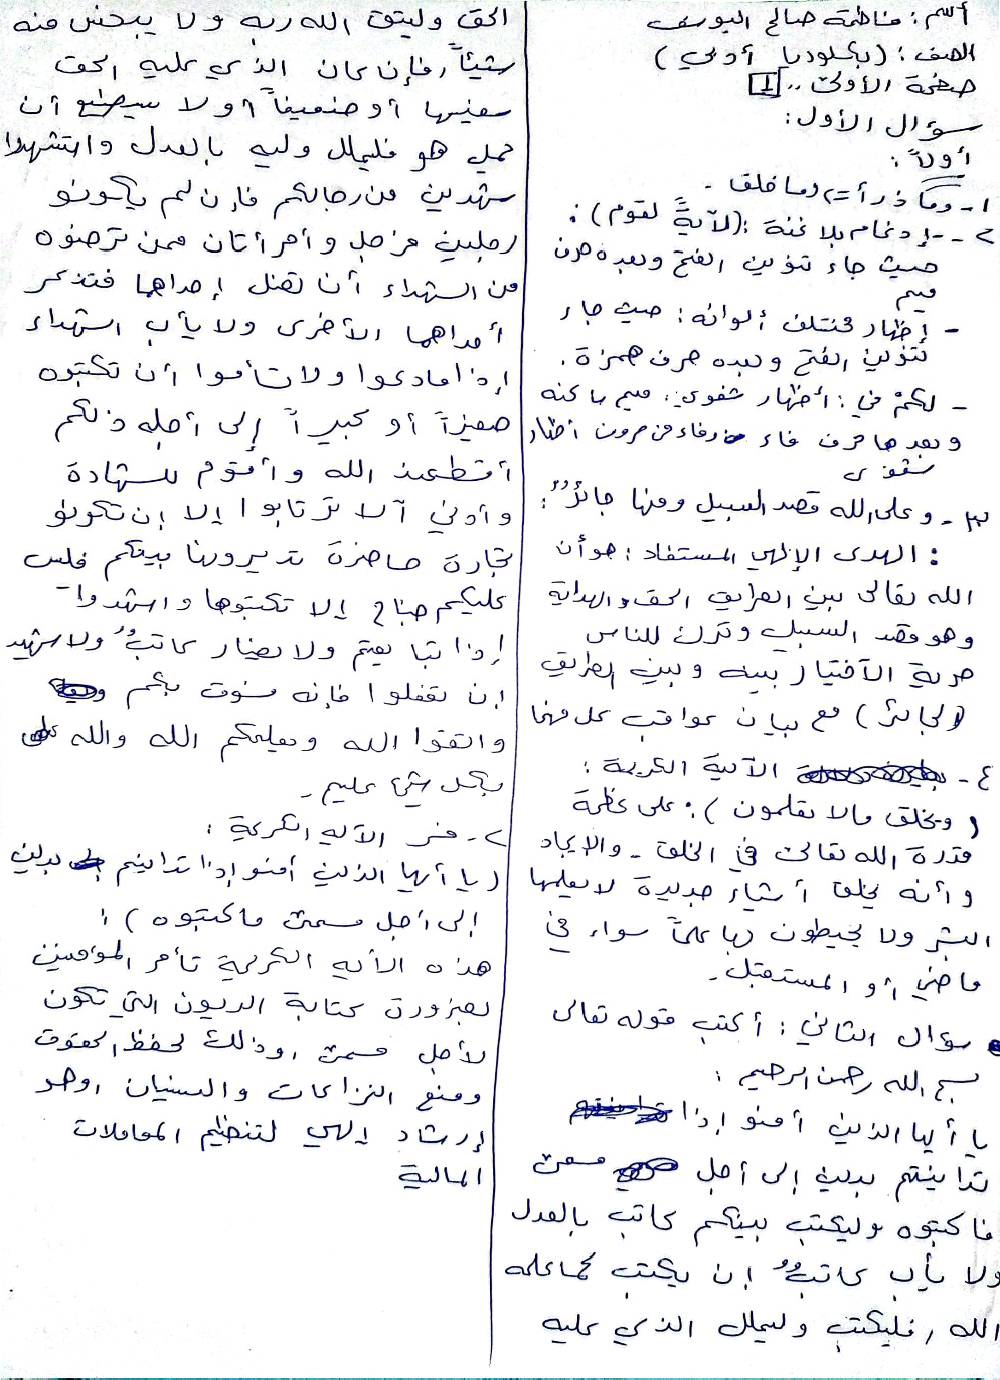 أسم: فاطمة صالح اليوسف
الصف: (بكلوريا أدبي)
صفحة الأولى .. 1
سؤال الأول:
أولاً:
١- وما ذرأ = وما خلق.
٢- - إدغام بلا غنة: (لآيةً لقوم):
حيث جاء تنوين الفتح وبعده حرف
ميم
- إظهار مختلف ألوانه: حيث جاء
تنوين الفتح وبعده حرف همزة.
- لكمْ في: أظهار شفوي: ميم ساكنه
وبعدها حرف فاء وفاء من حروف أظهار
شفوي
٣- وعلى الله قصد السبيل ومنها جائرٌ:
: الهدى الإلهي المستفاد: هو أن
الله تعالى بين الطرايق الحق والهداية
وهو قصد السبيل وترك للناس
حرية الأختيار بينه وبين الطريق
(الجائر) مع بيان عواقب كل منهما
٤- الآية الكريمة:
(ويخلق مالا تعلمون): على عظمة
قدرة الله تعالى في الخلق - والإيجاد
وأنه يخلق أشياء جديدة لا يعلمها
البشر ولا يحيطون بها علماً سواء في
ماضي أو المستقبل.
سؤال الثاني: أكتب قوله تعالى
بسم الله رحمن الرحيم:
يا أيها الذين أمنو إذا
تداينتم بدين إلى أجل مسمى
فاكتبوه وليكتب بينكم كاتب بالعدل
ولا يأب كاتبٌ إن يكتب كما علمه
الله, فليكتب وليملل الذي عليه
الحق وليتق الله ربه ولا يبخس منه
شيئاً, فإن كان الذي عليه الحق
سفيها أو ضعيفاً أو لا يسطيع أن
يمل هو فليملل وليه بالعدل واستشهدوا
شهدين من رجالكم فإن لم يكونو
رجلين فرجل وأمرأتان ممن ترضوه
من الشهداء أن تضل إحداهما فتذكر
أحداهما الأخرى ولا يأب الشهداء
إذا مادعوا ولا تسأموا أن تكتبوه
صغيراً أو كبيراً إلى أجله ذلكم
أقسط عند الله وأقوم للشهادة
وأدنى ألا ترتابوا إلا إن تكونو
تجارة حاضرة تديرونها بينكم فليس
عليكم جناح إلا تكتبوها واشهدوا
إذا تبايعتم ولا يضار كاتبٌ ولا شهيد
إن تفعلوا فإنه فسوق بكم
واتقوا الله ويعلمكم الله والله
بكل شيء عليم.
٢- فسر الآيه الكريمة:
(يا أيها الذين أمنو إذا تداينتم بدين
إلى أجل مسمى فاكتبوه):
هذه الأيه الكريمة تأمر المؤمنين
بضرورة كتابة الديون التي تكون
لأجل مسمى, وذلك لحفظ الحقوق
ومنع النزاعات والنسيان, وهو
إرشاد إلهي لتنظيم المعاملات
المالية